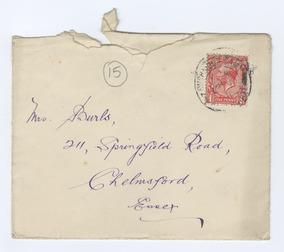 15
Mrs. Burls,
211, Springfield Road,
Chelmsford,
Essex